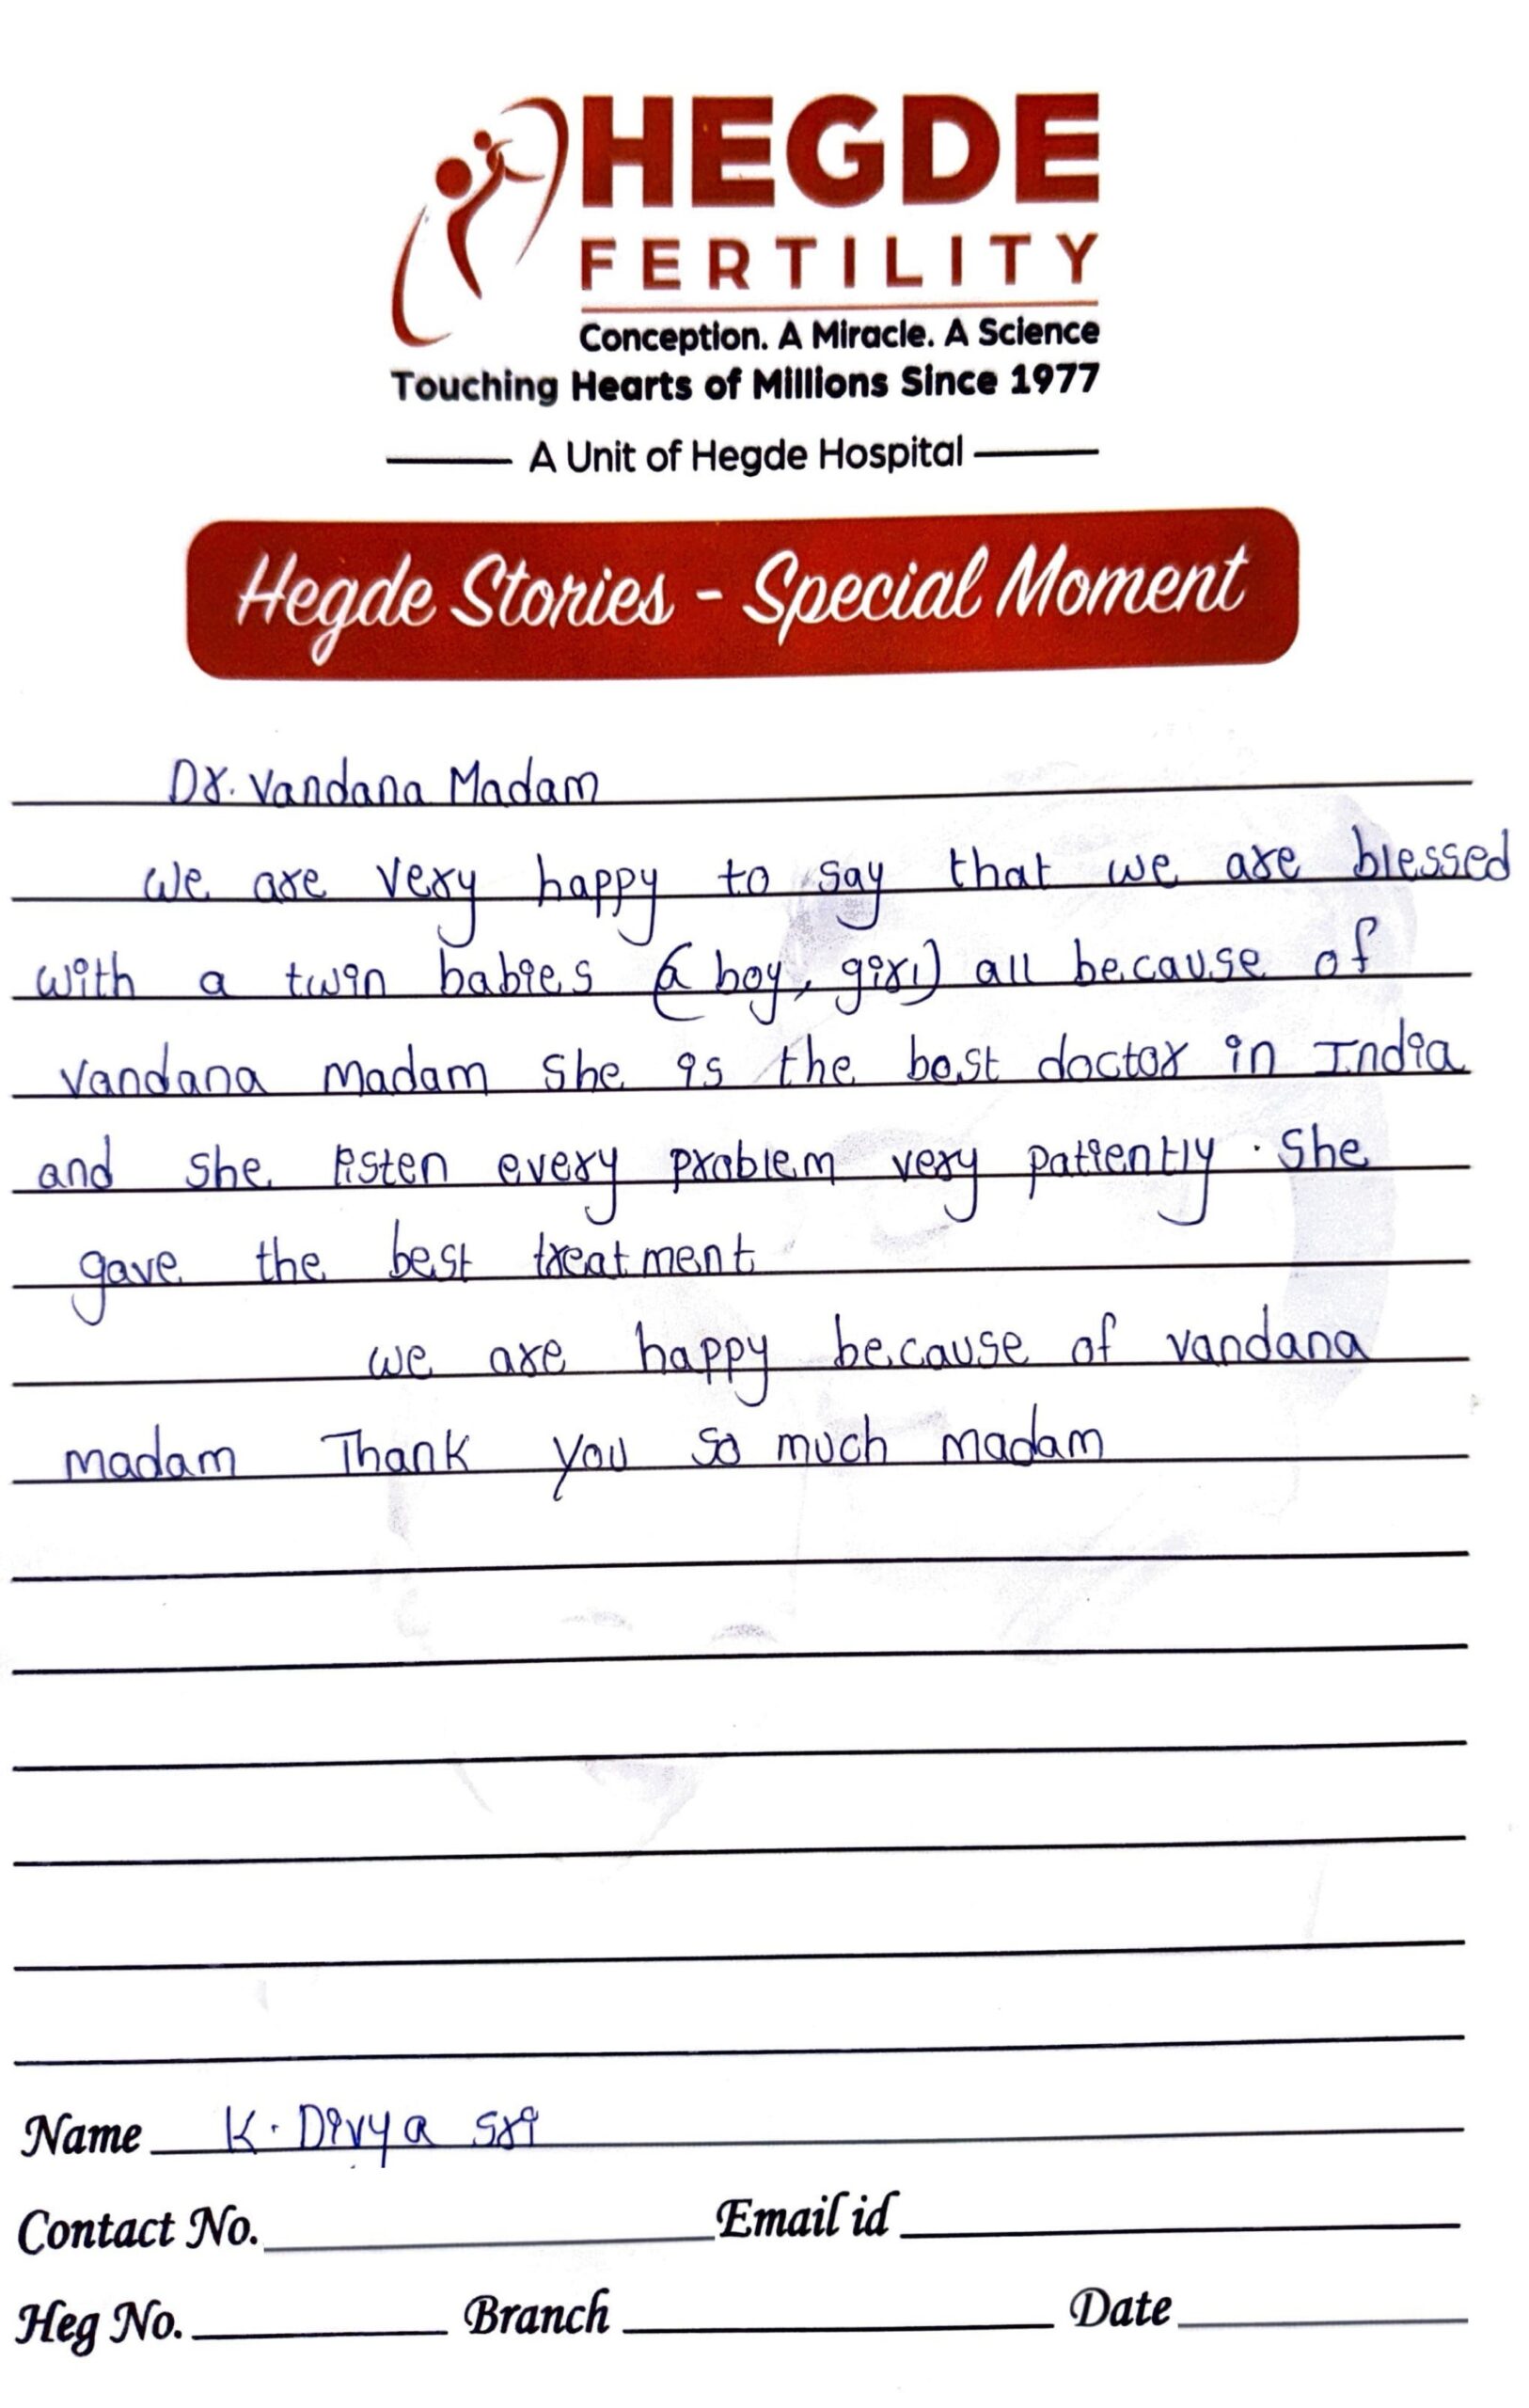 HEGDE
FERTILITY
Conception. A Miracle. A Science
Touching Hearts of Millions Since 1977
A Unit of Hegde Hospital
Hegde Stories - Special Moment
Dr. Vandana Madam
We are very happy to say that we are blessed
with a twin babies (a boy, girl) all because of
vandana madam she is the best doctor in India
and she listen every problem very patiently. She
gave the best treatment
we are happy because of vandana
madam Thank you so much madam
Name K. Divya sri
Contact No. Email id
Heg No. Branch Date